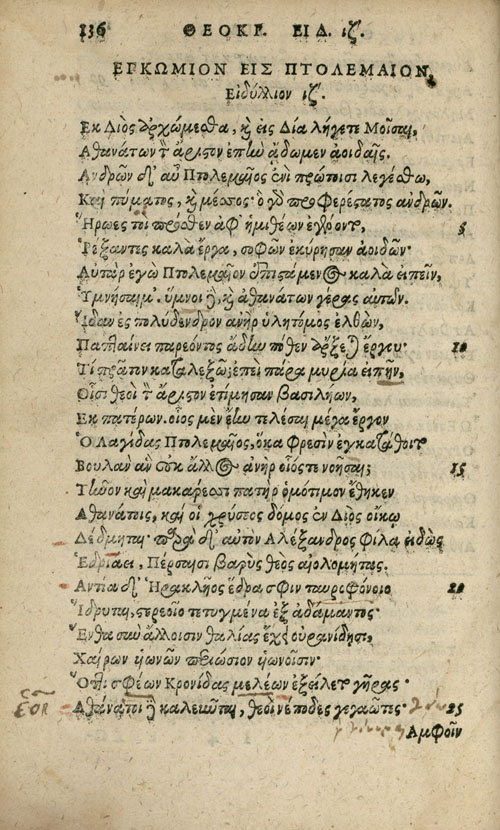 136 ΘΕΟΚΡ. ΕΙΔ. ιζ.
ΕΓΚΩΜΙΟΝ ΕΙΣ ΠΤΟΛΕΜΑΙΟΝ,
Εἰδύλλιον ιζ.
Εκ Διὸς ἀρχώμεσθα, καὶ εἰς Δία λήγετε Μοῖσαι,
Αθανάτων τὸν ἄριστον ἐπὴν ᾄδωμεν ἀοιδαῖς.
Ανδρῶν δ' αὖ Πτολεμαῖος ἐνὶ πρώτοισι λεγέσθω,
Καὶ πύματος, καὶ μέσσος· ὁ γὰρ προφερέστατος ἀνδρῶν.
Ἥρωες τοὶ πρόσθεν ἀφ' ἡμιθέων ἐγένοντο, 5
Ῥέξαντες καλὰ ἔργα, σοφῶν ἐκύρησαν ἀοιδῶν·
Αὐτὰρ ἐγὼ Πτολεμαῖον ἐπιστάμενος καλὰ εἰπεῖν,
Ὑμνήσαιμ'. ὕμνοι δὲ, καὶ ἀθανάτων γέρας αὐτῶν.
Ἴδαν ἐς πολύδενδρον ἀνὴρ ὑλητόμος ἐλθὼν,
Παπταίνει παρεόντος ἄδην πόθεν ἄρξεται ἔργου· 10
Τί πρᾶτον καταλεξῶ; ἐπεὶ πάρα μυρία εἰπῆν,
Οἷσι θεοὶ τὸν ἄριστον ἐτίμησαν βασιλήων,
Εκ πατέρων. οἷος μὲν ἔην τελέσαι μέγα ἔργον
Ὁ Λαγίδας Πτολεμαῖος, ὅκα φρεσὶν ἐγκατάθοιτο
Βουλὰν ἃν οὐκ ἄλλος ἀνὴρ οἷός τε νοῆσαι; 15
Τῆνον καὶ μακάρεσσι πατὴρ ὁμότιμον ἔθηκεν
Αθανάτοις, καί οἱ χρύσεος δόμος ἐν Διὸς οἴκῳ
Δέδμηται· παρὰ δ' αὐτὸν Αλέξανδρος φίλα εἰδὼς
Ἑδριάει, Πέρσαισι βαρὺς θεὸς αἰολομήτας.
Αντία δ' Ἡρακλῆος ἕδρα σφιν ταυροφόνοιο 20
Ἵδρυται, στερεοῖο τετυγμένα ἐξ ἀδάμαντος·
Ἔνθα σὺν ἄλλοισιν θαλίας ἔχει οὐρανίδῃσι,
Χαίρων υἱωνῶν περιώσιον υἱωνοῖσιν·
Ὅττι σφέων Κρονίδας μελέων ἐξείλετο γῆρας·
Αθάνατοι δὲ καλεῦνται, θεοὶ νέποδες γεγαῶτες· 25
Αμφοῖν